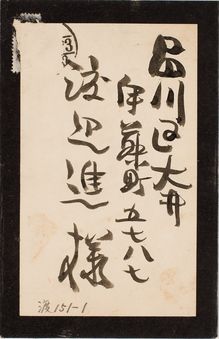 品川区大井
伊藤町五七八七
渡辺進様
渡151-1